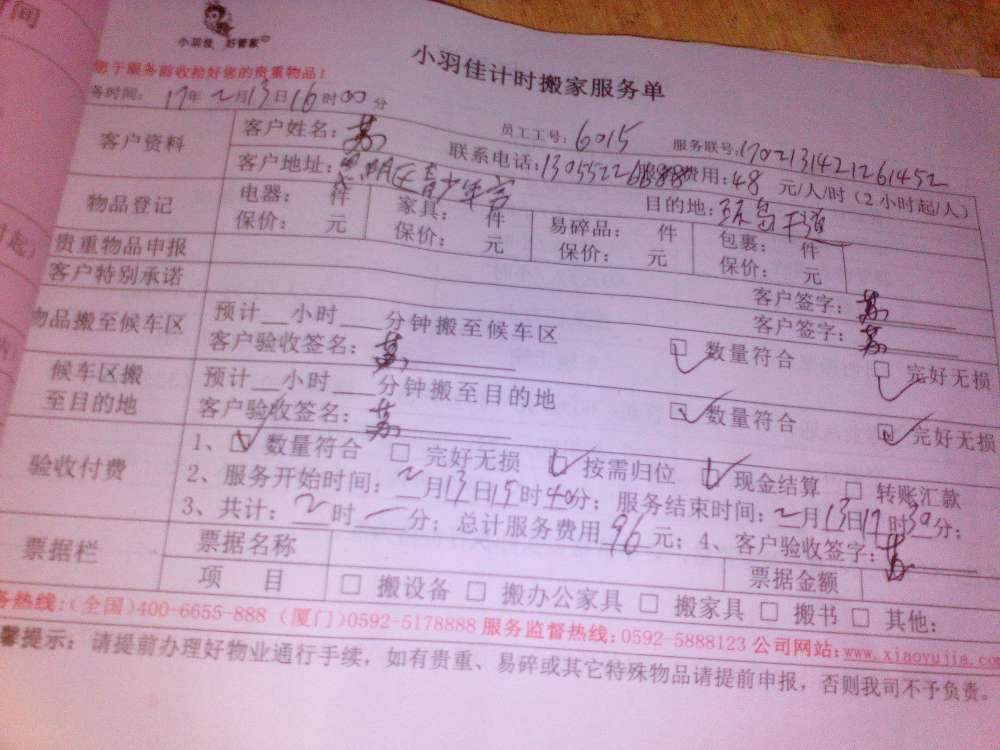 间
小羽佳 好管家
小羽佳计时搬家服务单
您于服务前收拾好您的贵重物品！
务时间： 17年2月13日16时00分
员工工号：6015 服务联号：17021314212261452
客户资料 客户姓名：苏 联系电话： 费用：48 元/人/时（2小时起/人）
客户地址：思明区青少年宫 目的地：
物品登记 电器： 件 家具： 件 易碎品： 件 包裹： 件
保价： 元 保价： 元 保价： 元 保价： 元
贵重物品申报 客户签字：苏
客户特别承诺 客户签字：苏
物品搬至候车区 预计__小时___分钟搬至候车区
客户验收签名：苏 数量符合 完好无损
候车区搬至目的地 预计__小时___分钟搬至目的地
客户验收签名：苏 数量符合 完好无损
验收付费 1、数量符合 完好无损 按需归位 现金结算 转账汇款
2、服务开始时间：2月13日15时40分；服务结束时间：2月13日17时30分；
3、共计：2时一分；总计服务费用96元；4、客户验收签字：苏
票据栏 票据名称 票据金额
项 目 搬设备 搬办公家具 搬家具 搬书 其他：
务热线：(全国)400-6655-888 (厦门)0592-5178888 服务监督热线：0592-5888123 公司网站：www.xiaoyujia.co
馨提示：请提前办理好物业通行手续，如有贵重、易碎或其它特殊物品请提前申报，否则我司不予负责。